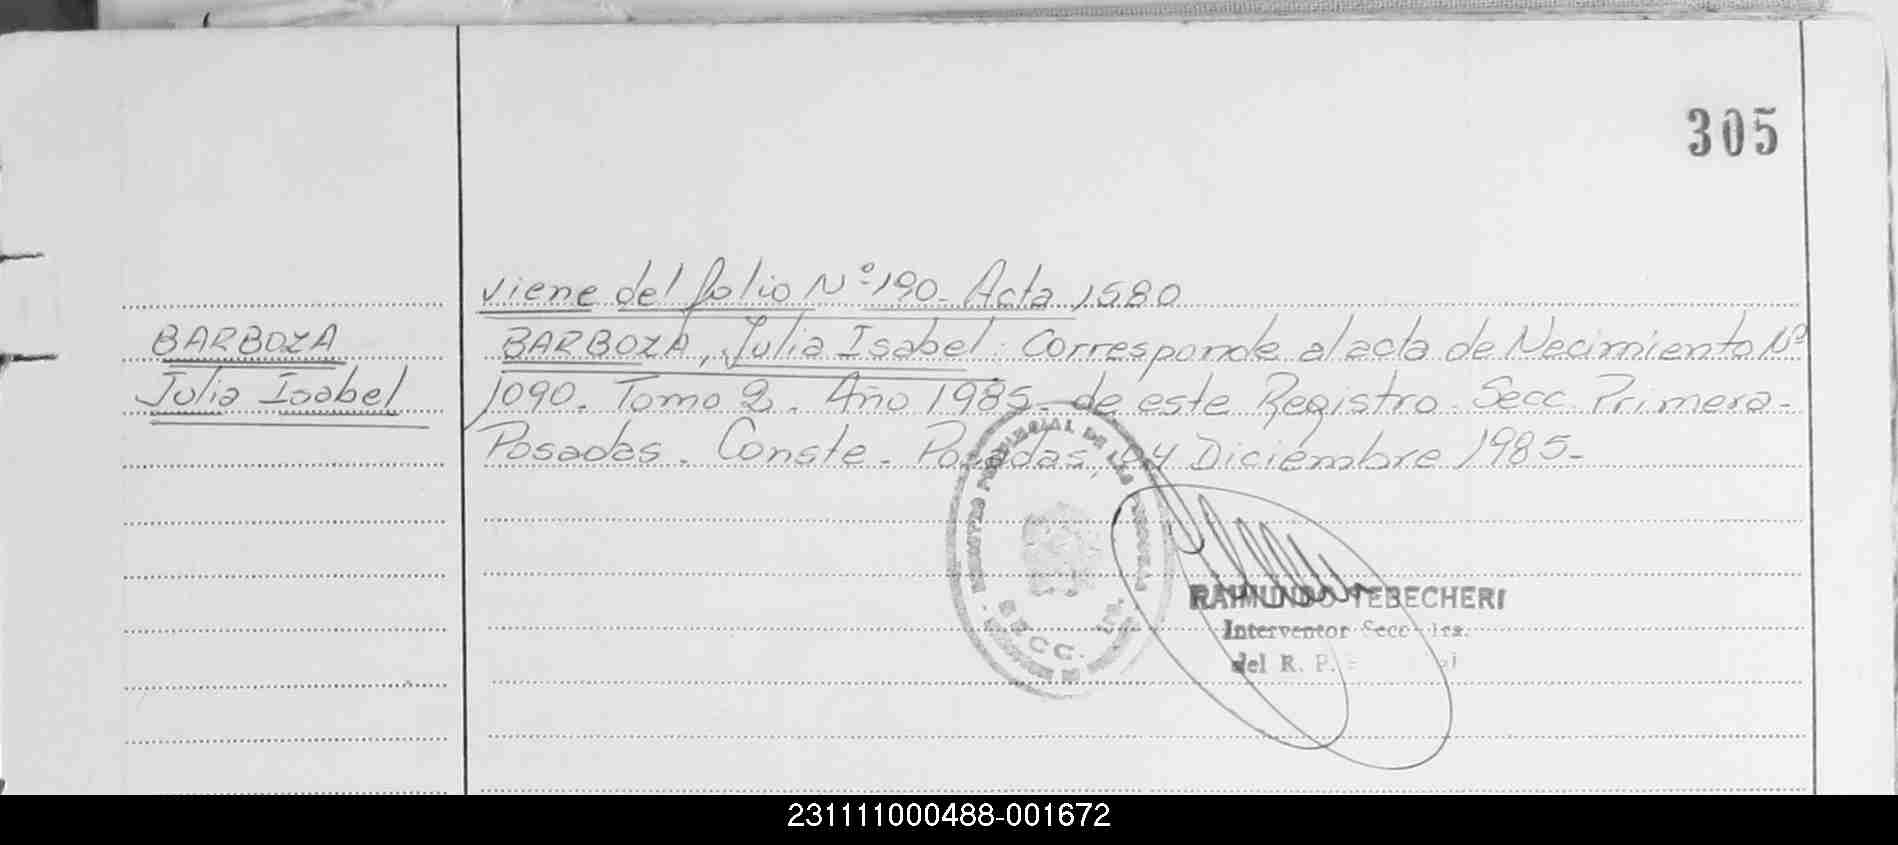 305
viene del folio Nº 190 - Acta 1580
BARBOZA
Julia Isabel
BARBOZA, Julia Isabel. Corresponde al acta de Necimiento Nº
1090. Tomo 2. Año 1985. de este Registro. Secc. Primera-
Posadas. Conste. Posadas, 04 Diciembre 1985-
PROVINCIAL DE LAS
SECC. 1ra.
RAIMUNDO TEBECHERI
Interventor Secc. 1ra.
del R. P.
231111000488-001672